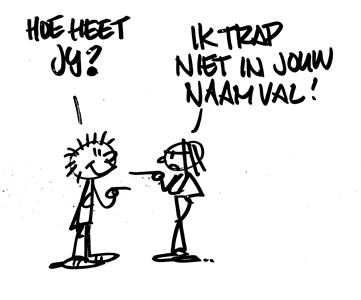 HOE HEET
JY?
IK TRAP
NIET IN JOUW
NAAMVAL!